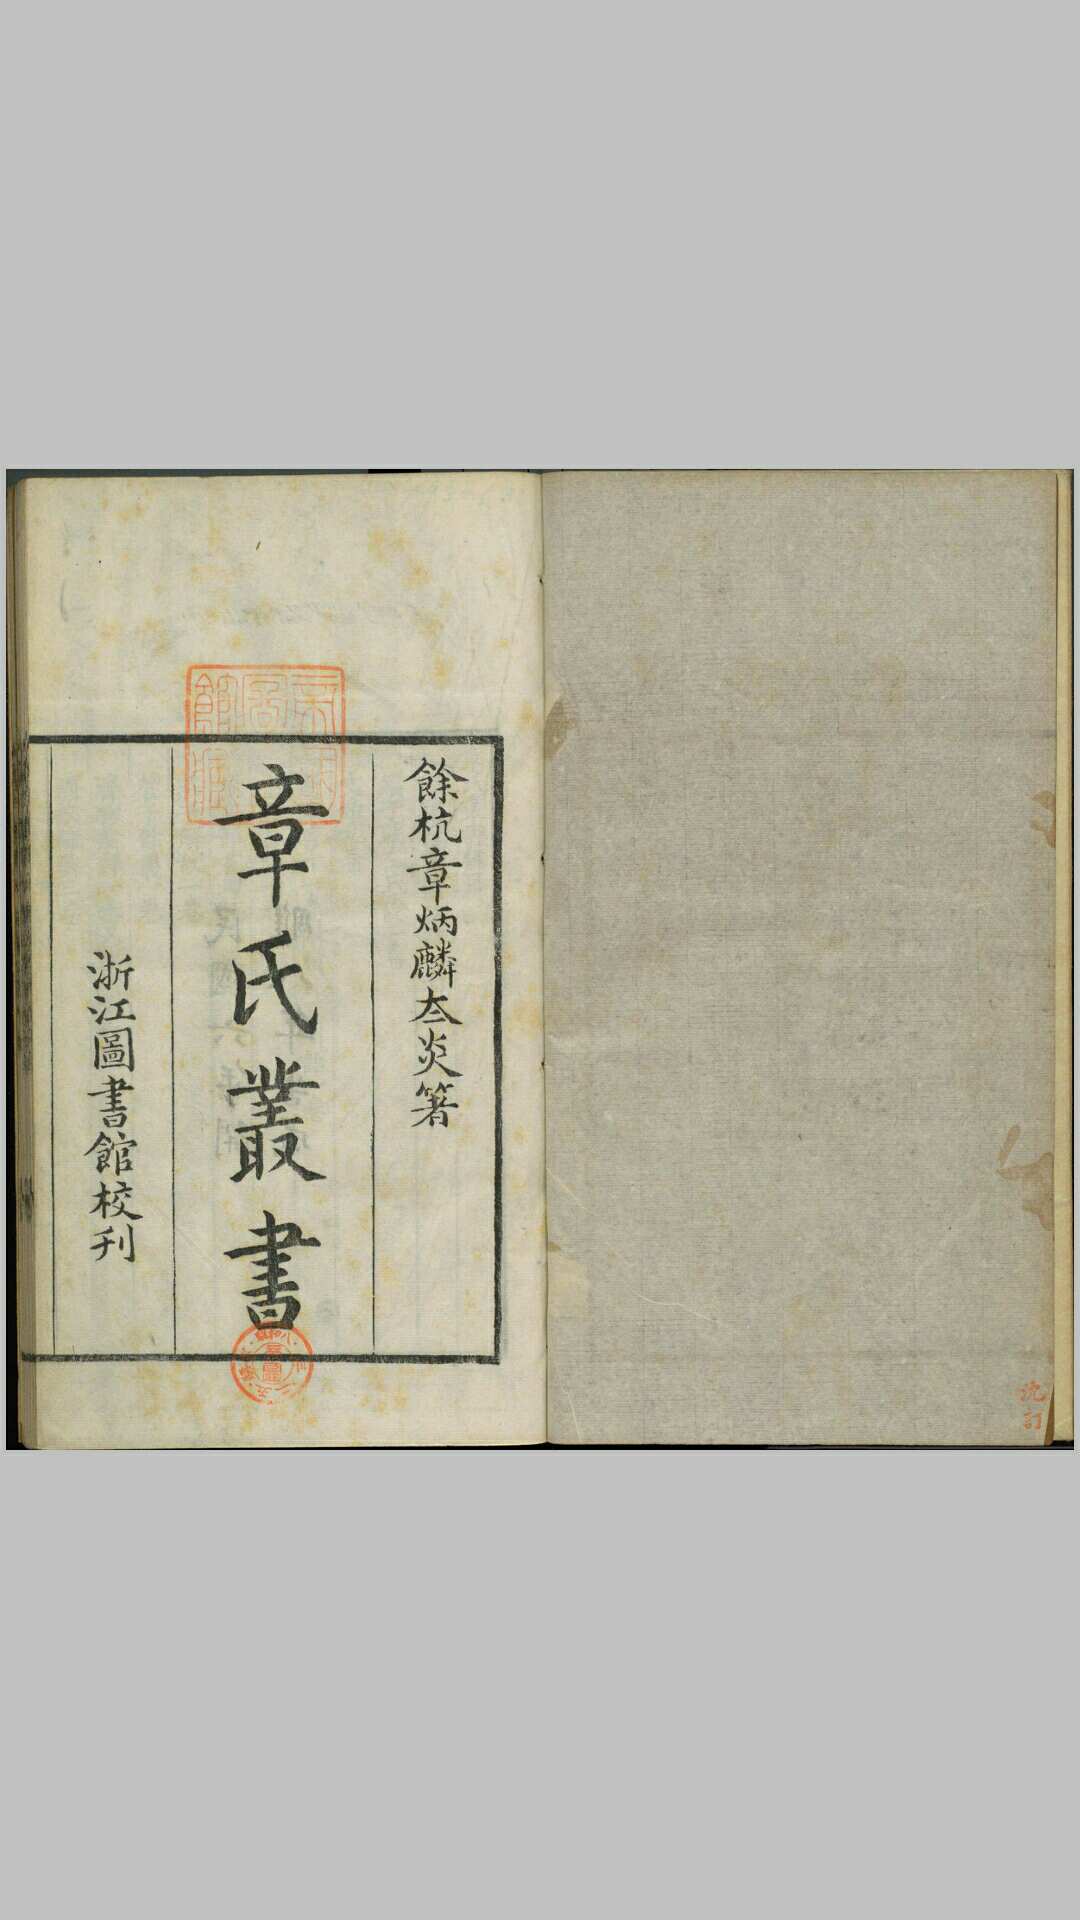 餘杭章炳麟夳炎箸
章氏叢書
浙江圖書館校刊
沈訂